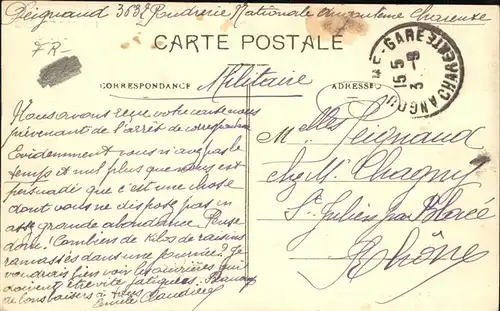 Peignaud 363E Poudrerie Nationale Angoulême Charente
FR-
CARTE POSTALE
CORRESPONDANCE
Militaire
ADRESSE
GARE
CHARENTE
15-5
3 -9
Nous avons reçu votre carte nous
prévenant de l'arrêt de correspondance
Evidemment vous n'avez pas le
temps et nul plus que nous est
persuadés que c'est une chose
dont vous ne dispose pas en
assez grande abondance. Pense
donc! Combien de kilos de raisins
ramassés dans une journée? Je
voudrais bien voir les ouvrières qui
doivent être vite fatiguées. Beaucoup
de bons baisers à tous
Emile Claudien
Melles Peignaud
chez M. Chagny
St Julien par Blacé
Rhône